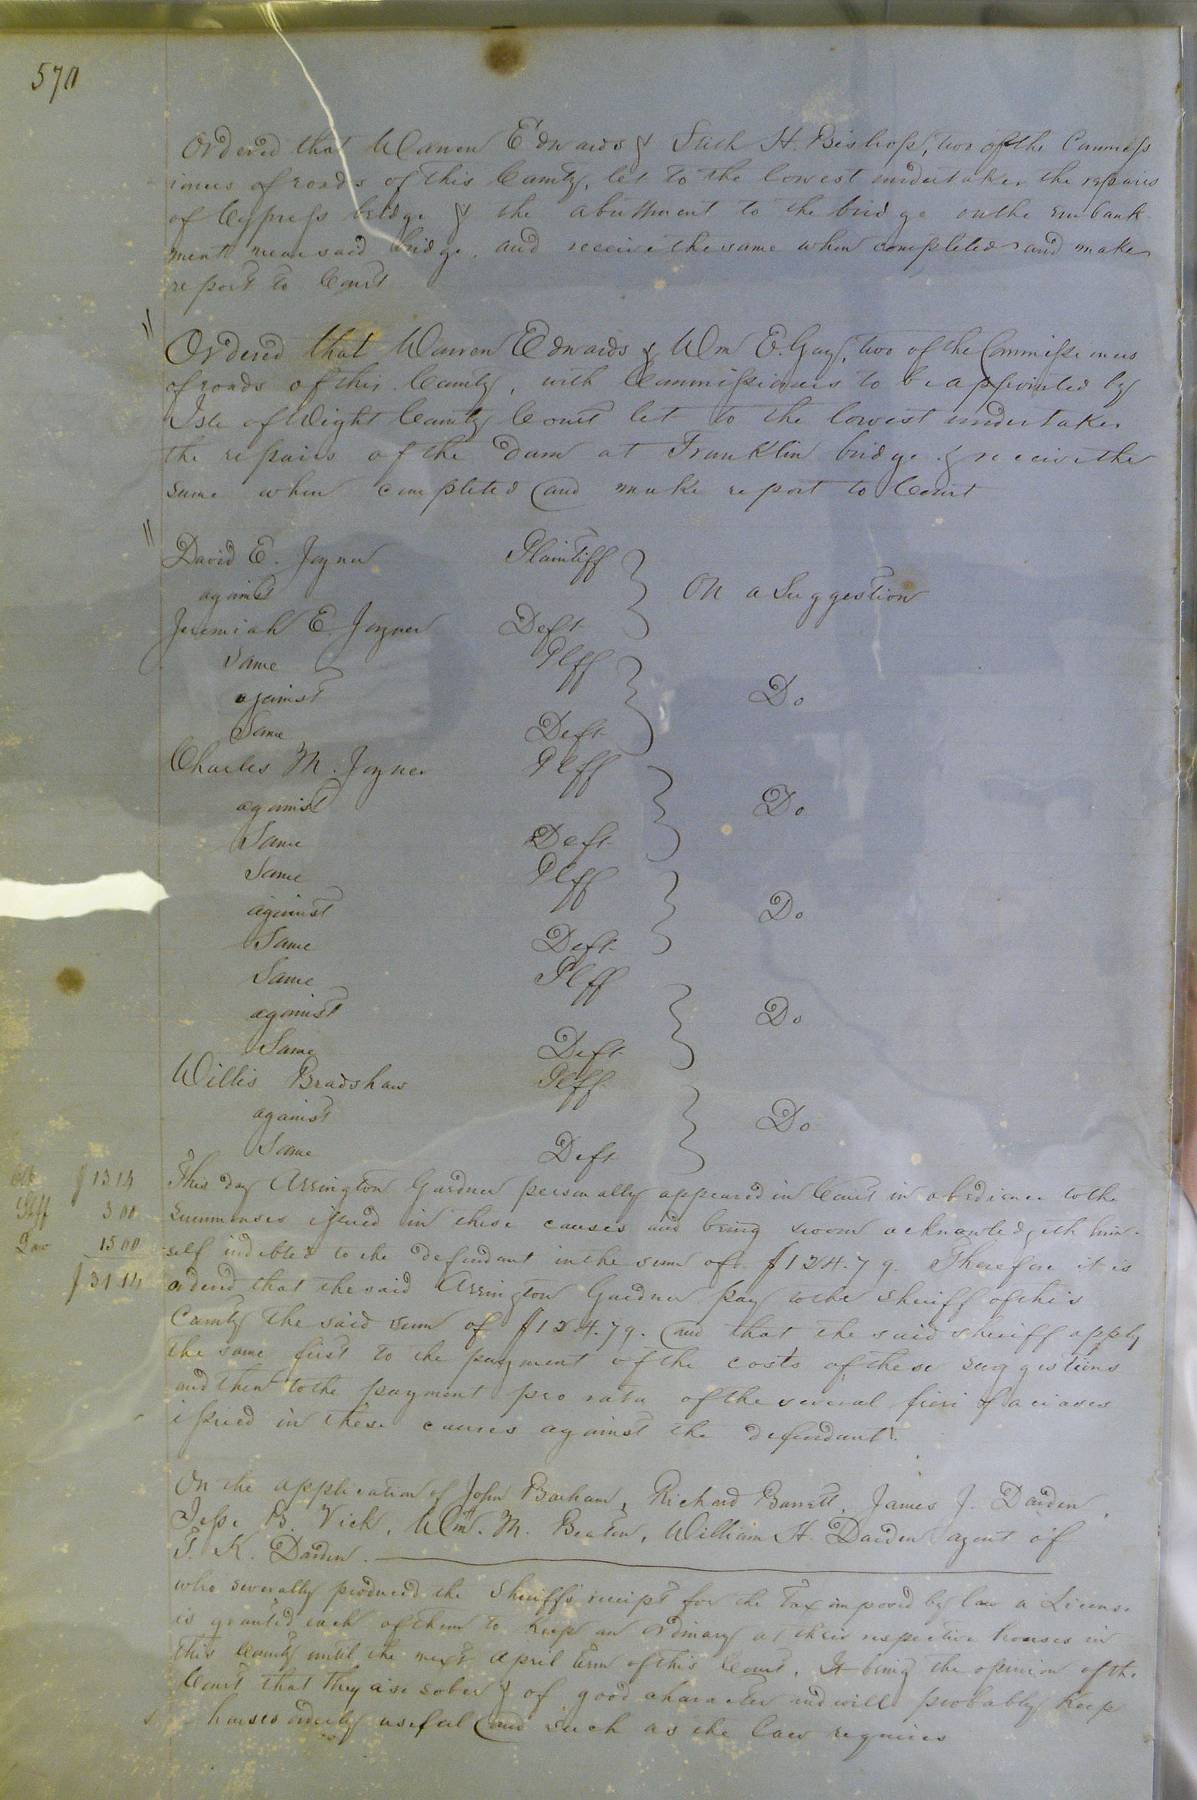 570
Ordered that Warren Edwards & Zach H. Bishop, two of the Commiss
ioners of roads of this County, let to the lowest undertaker the repairs
of Cypress bridge & the abutment to the bridge on the embank
ment near said bridge, and receive the same when completed and make
report to Court
"
Ordered that Warren Edwards & Wm E. Gay, two of the Commissioners
of roads of this County, with Commissioners to be appointed by
Isle of Wight County Court let to the lowest undertaker
the repairs of the dam at Franklin bridge & receive the
same when completed and make report to Court
"
David E. Joyner Plaintiff
against On a Suggestion
Jeremiah E. Joyner Deft
Same Plff
against Do
Same Deft
Charles M. Joyner Plff
against Do
Same Deft
Same Plff
against Do
Same Deft
Same Plff
against Do
Same Deft
Willis Bradshaw Plff
against Do
Same Deft
$13 14 This day Arrington Gardner personally appeared in Court in obedience to the
Plff 3 00 summonses issued in these causes and being sworn acknowledgeth him-
15 00 self indebted to the defendant in the sum of $124.79. Therefore it is
$31 14 ordered that the said Arrington Gardner pay to the Sheriff of this
County the said sum of $124.79. and that the said sheriff apply
the same first to the payment of the costs of these suggestions
and then to the payment pro rata of the several fieri faciases
issued in these causes against the defendant.
On the application of John Barham, Richard Barrett, James J. Darden,
Jesse B. Vick, Wm. M. Beaton, William H. Darden agent of
J. K. Darden.
who severally produced the Sheriff's receipt for the Tax imposed by law a License
is granted each of them to keep an ordinary at their respective houses in
this County until the next April term of this Court. It being the opinion of the
Court that they are sober & of good character and will probably keep
houses orderly useful and such as the law requires